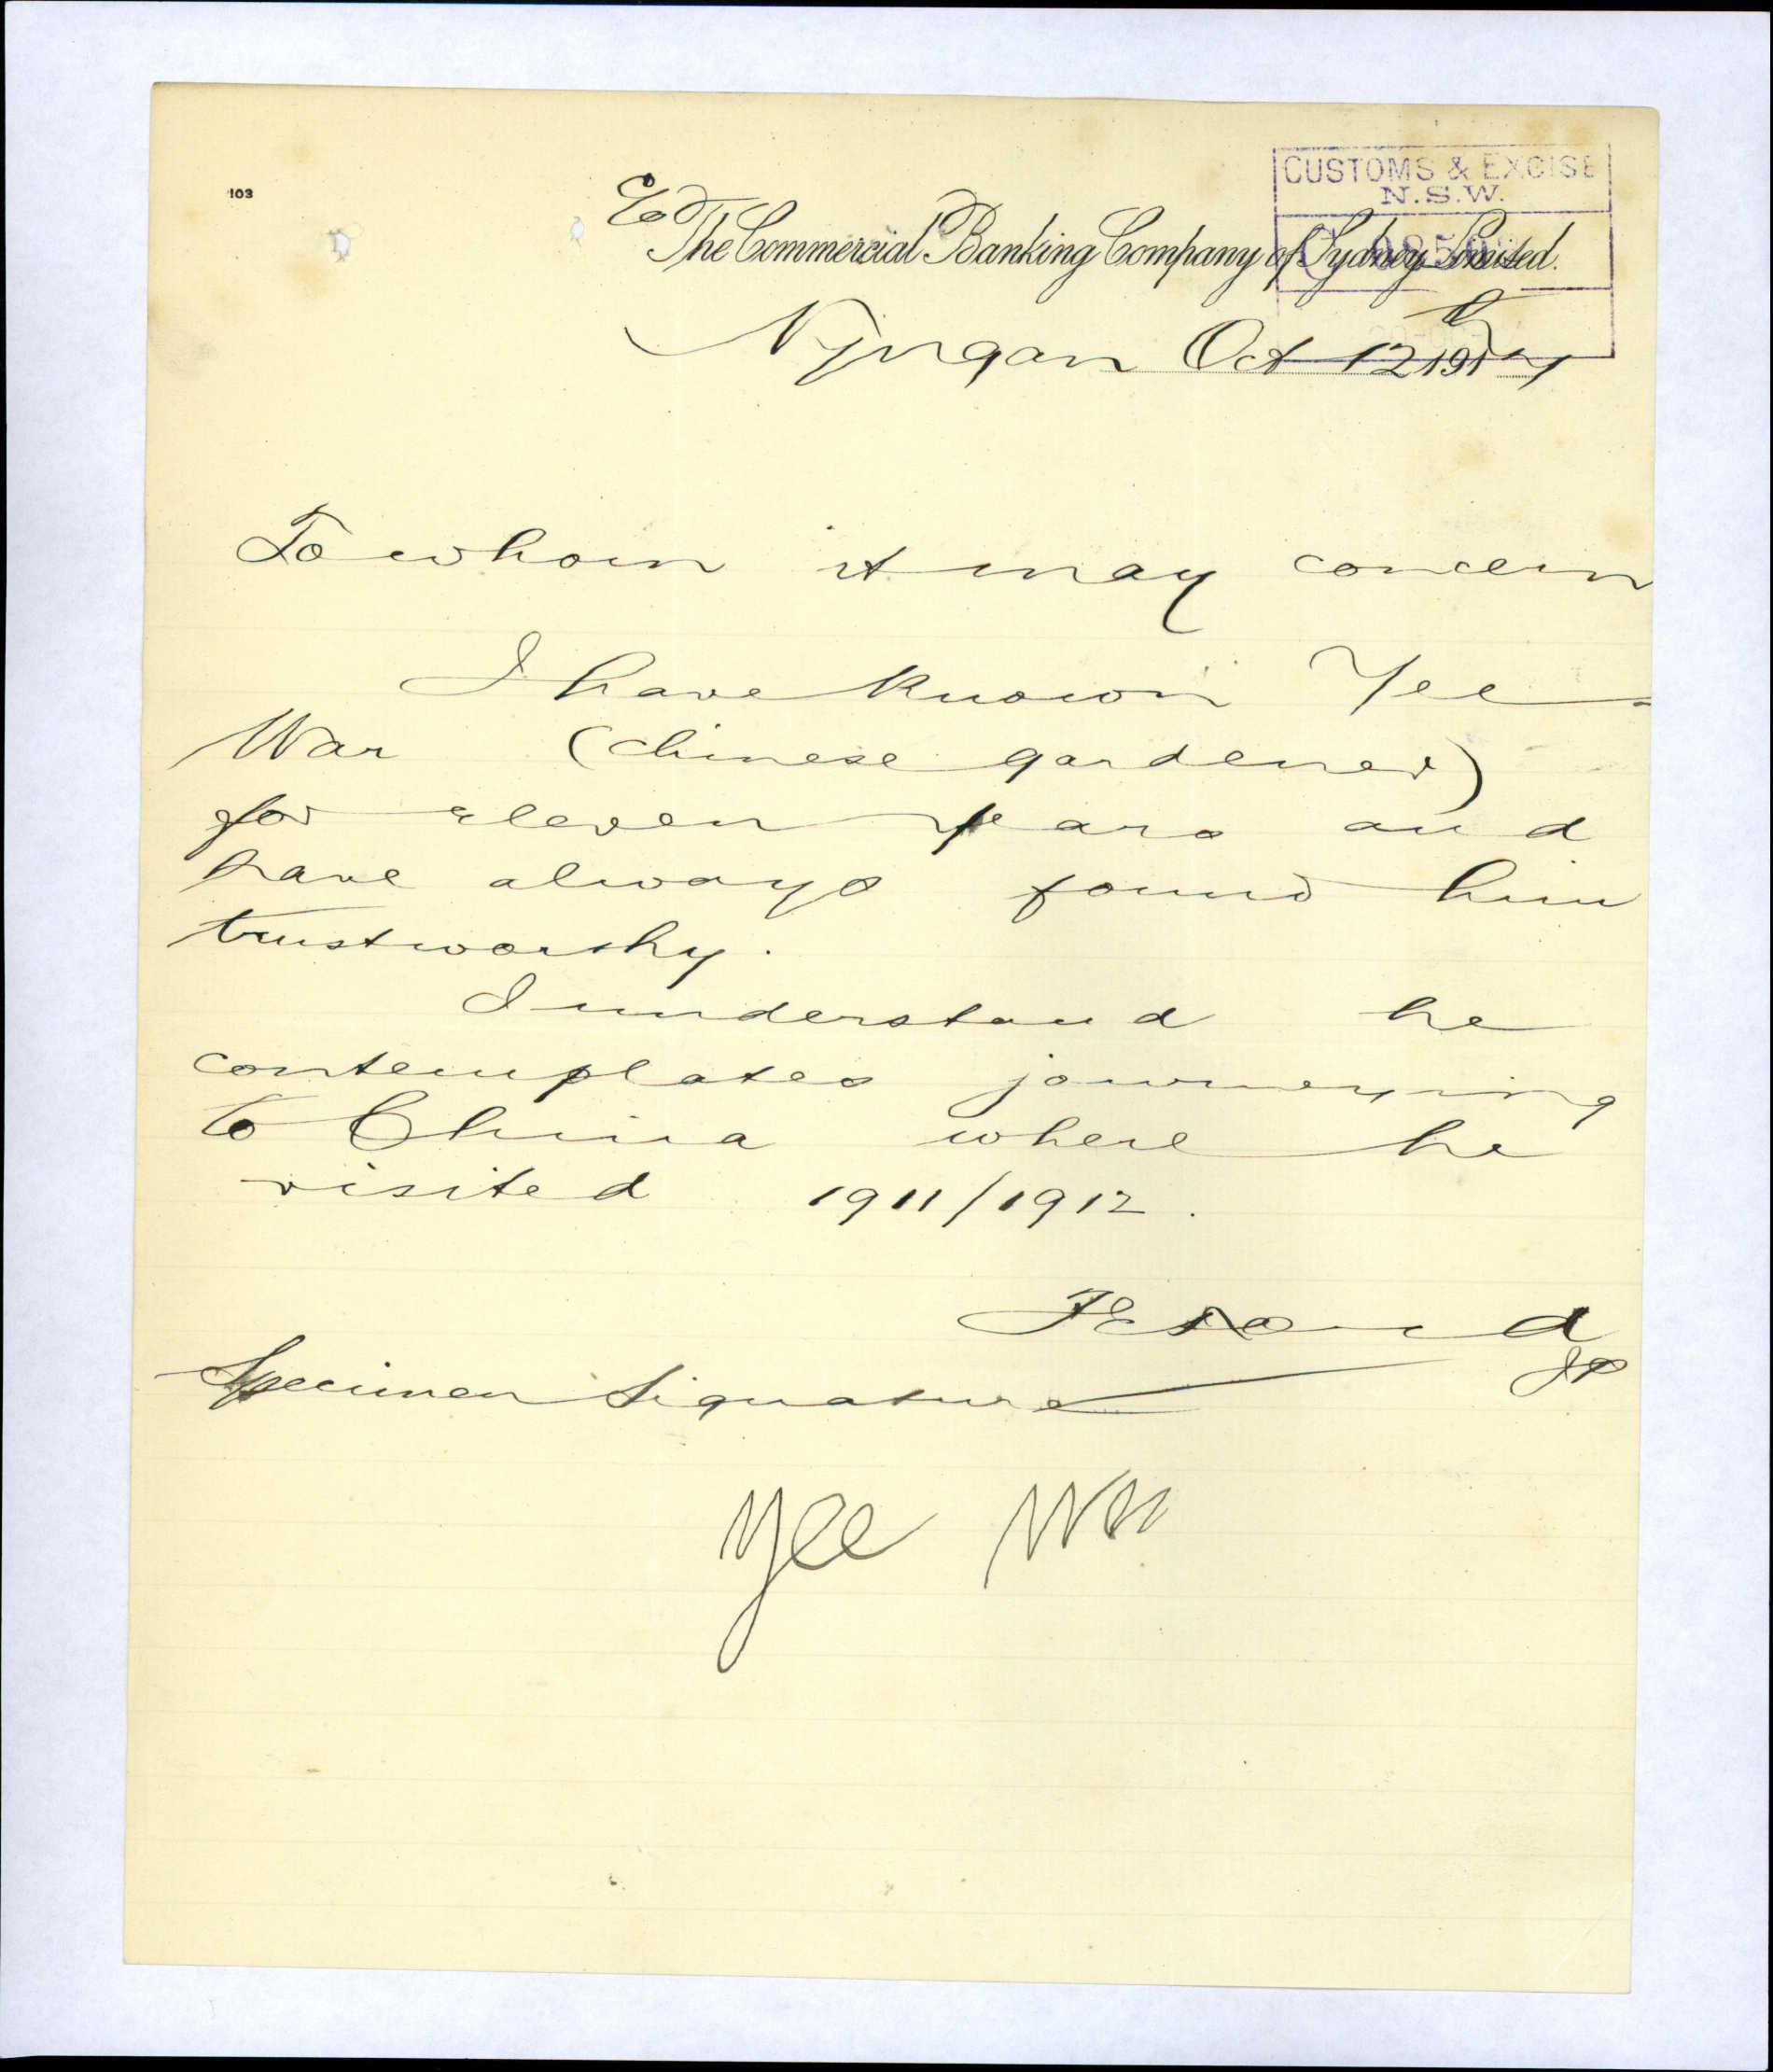 103
CUSTOMS & EXCISE
N.S.W.
C/o The Commercial Banking Company of Sydney Limited.
Nyngan Oct 12th 191
To whom it may concern
I have known Yee
War (Chinese gardener)
for eleven years and
have always found him
trustworthy.
I understand he
contemplates journeying
to China where he
visited 1911/1912.
JP
Specimen Signature
Yee